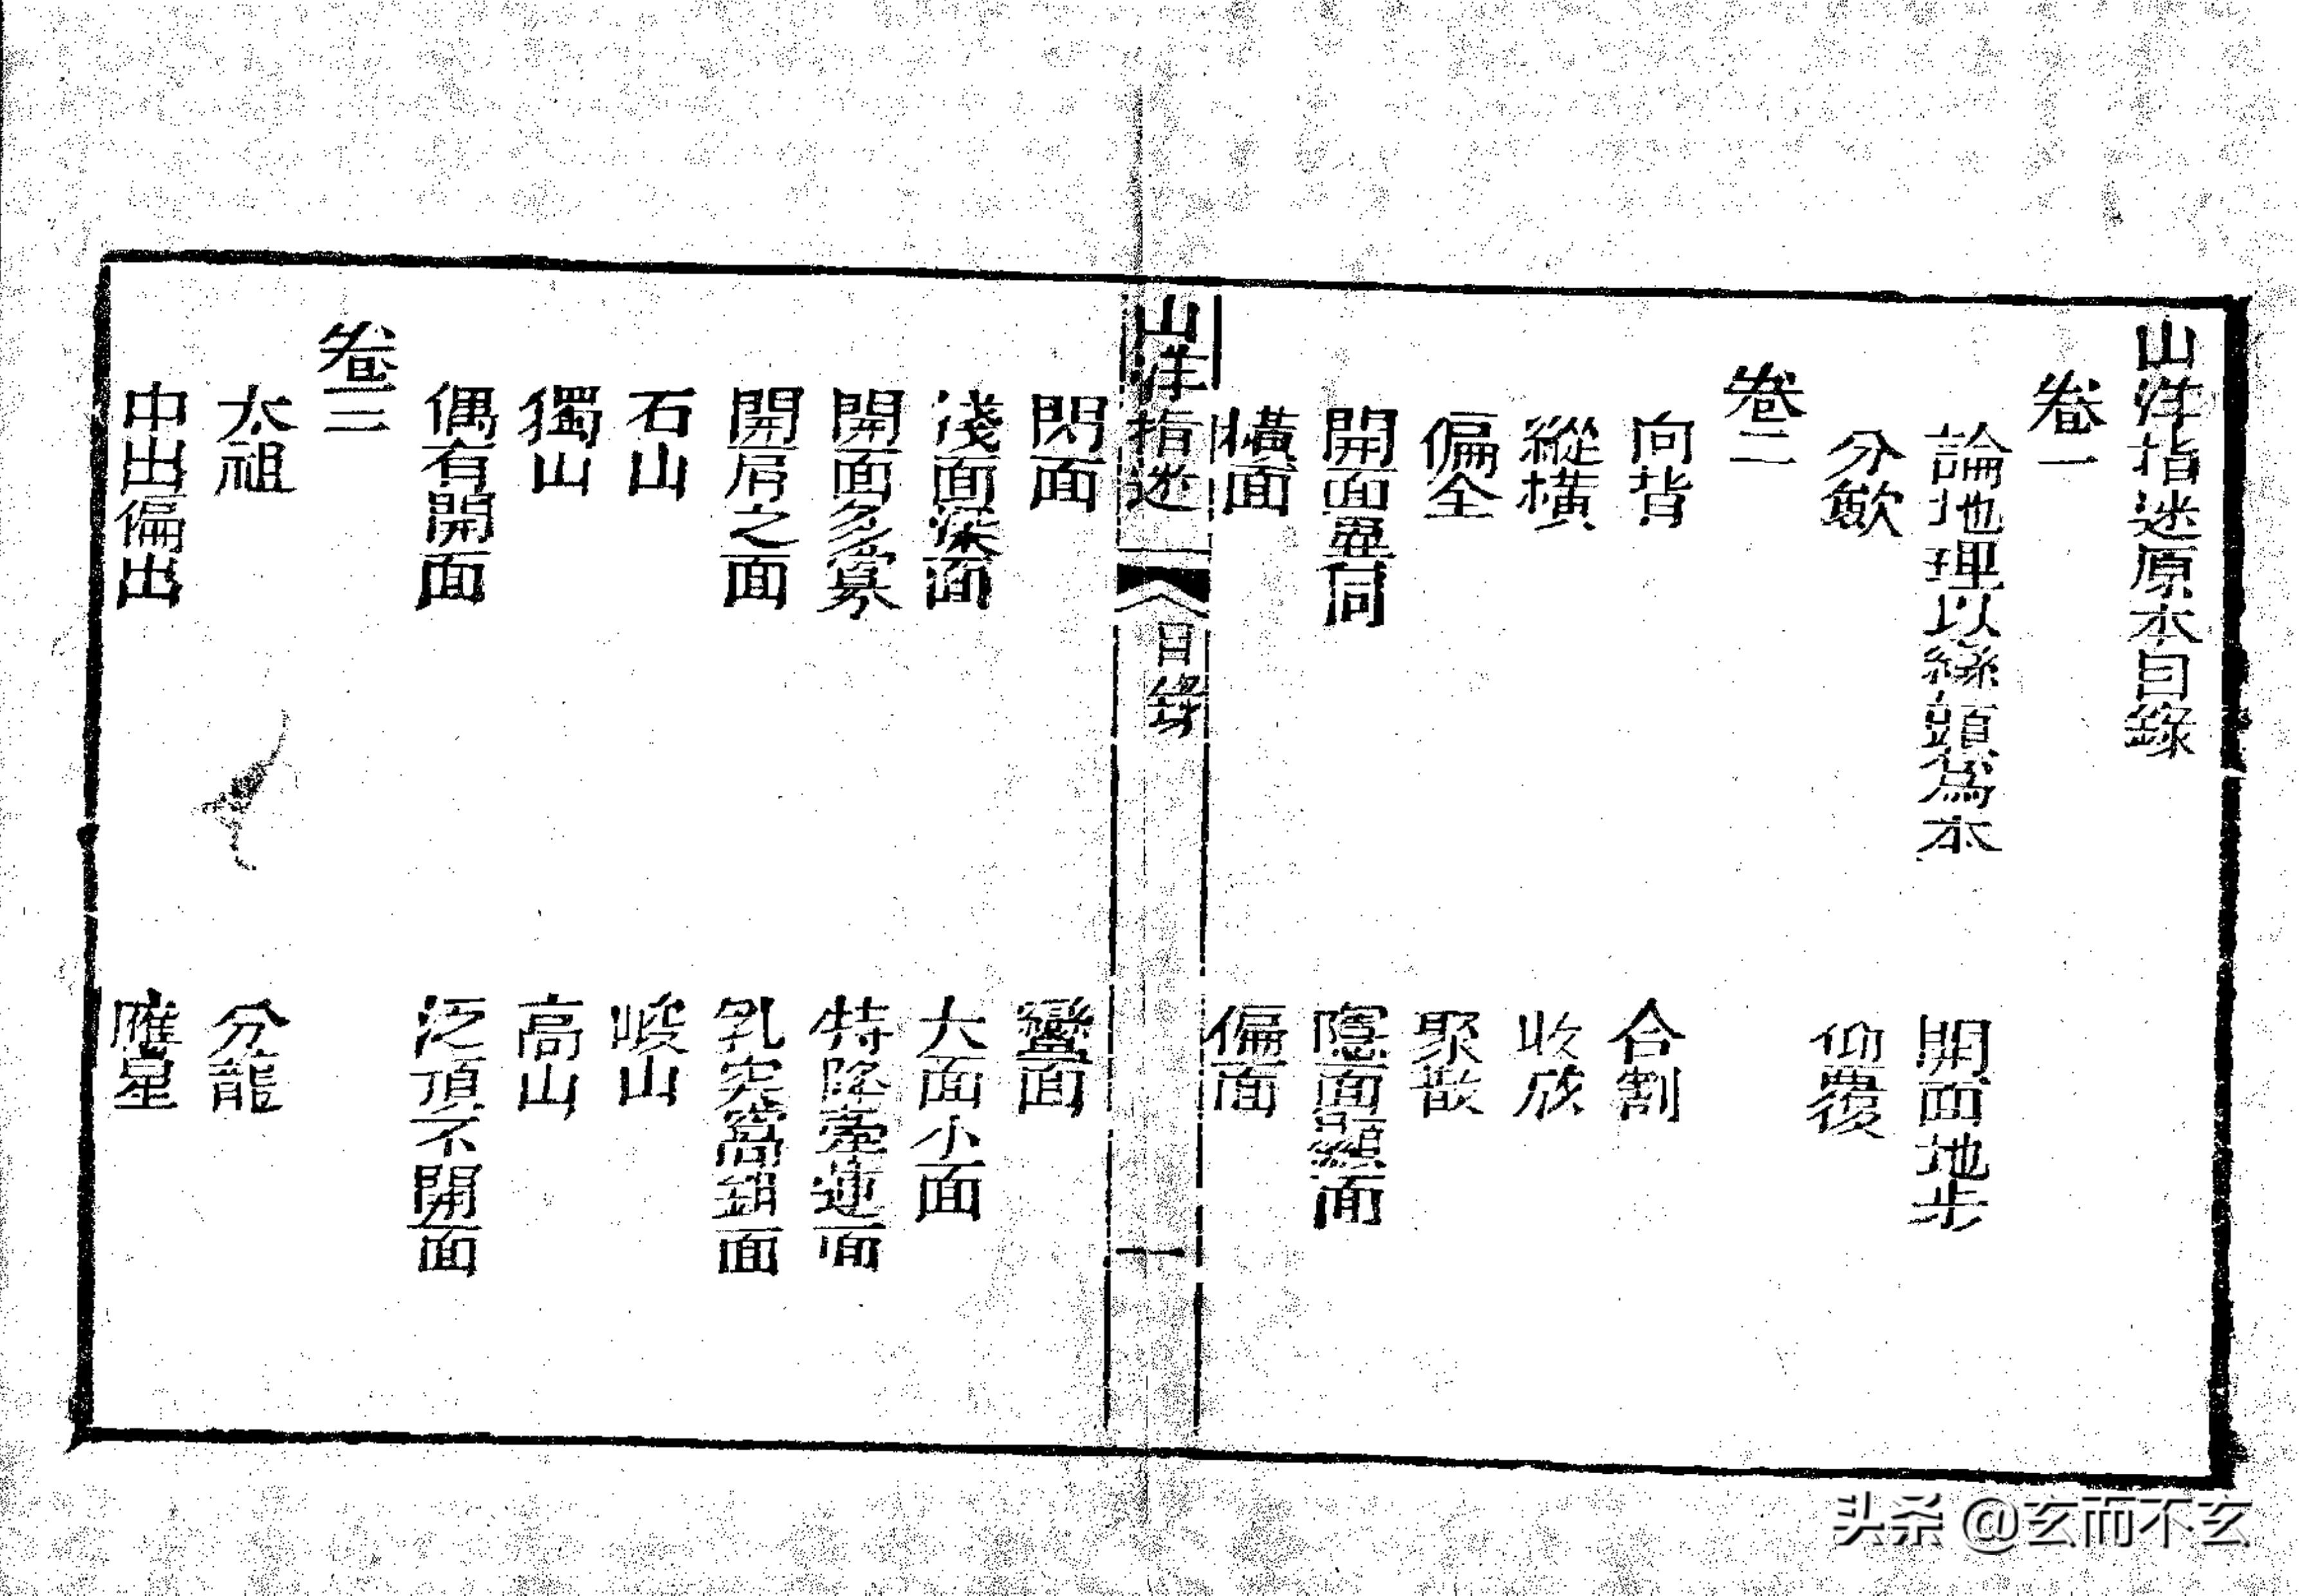 山洋指迷原本目錄
卷一
論地理以巒頭爲本　開面地步
分歛　仰覆
卷二
向背　合割
縱橫　收放
偏全　聚散
開面異同　隱面顯面
橫面　偏面
山洋指迷　目錄　一
閃面　蠻面
淺面深面　大面小面
開面多寡　特降牽連面
開肩之面　乳突窩鉗面
石山　峻山
獨山　高山
偶有開面　泛頂不開面
卷三
太祖　分龍
中出偏出　應星
头条 @玄而不玄